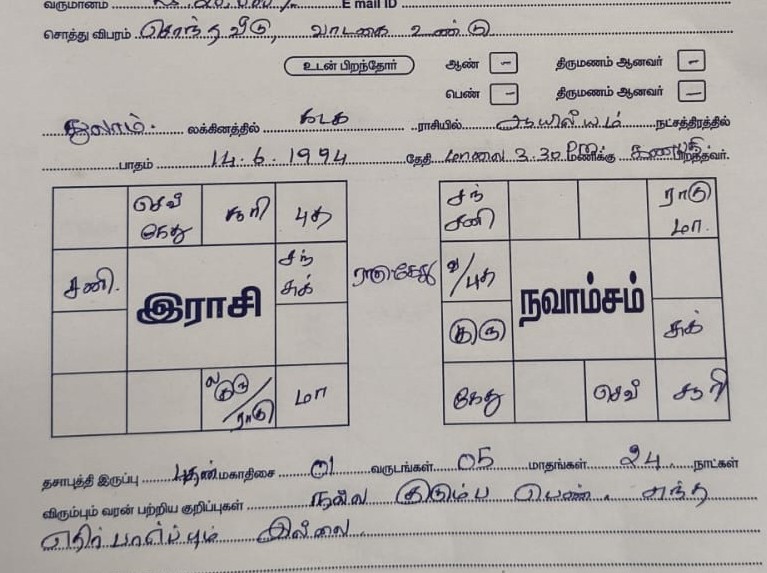 வருமானம் E mail ID
சொத்து விபரம் சொந்த வீடு, வாடகை உண்டு
உடன் பிறந்தோர் ஆண் – திருமணம் ஆனவர் –
பெண் – திருமணம் ஆனவர் –
துலாம். லக்கினத்தில் கடக ராசியில் ஆயில்யம் நட்சத்திரத்தில்
பாதம் 14.6.1994 தேதி மாலை 3.30 மணிக்கு பிறந்தவர்.
செவ் கேது
சூரி
புத
சனி.
சந் சுக்
இராசி
ல குரு/ராகு
மா
ராகு-கேது
சந் சனி
ராகு மா.
ல/புத
நவாம்சம்
குரு
சுக்
கேது
செவ்
சூரி
தசாபுத்தி இருப்பு புதன் மகாதிசை 01 வருடங்கள் 05 மாதங்கள் 24 நாட்கள்
விரும்பும் வரன் பற்றிய குறிப்புகள் நல்ல குடும்ப பெண். எந்த
எதிர்பார்ப்பும் இல்லை